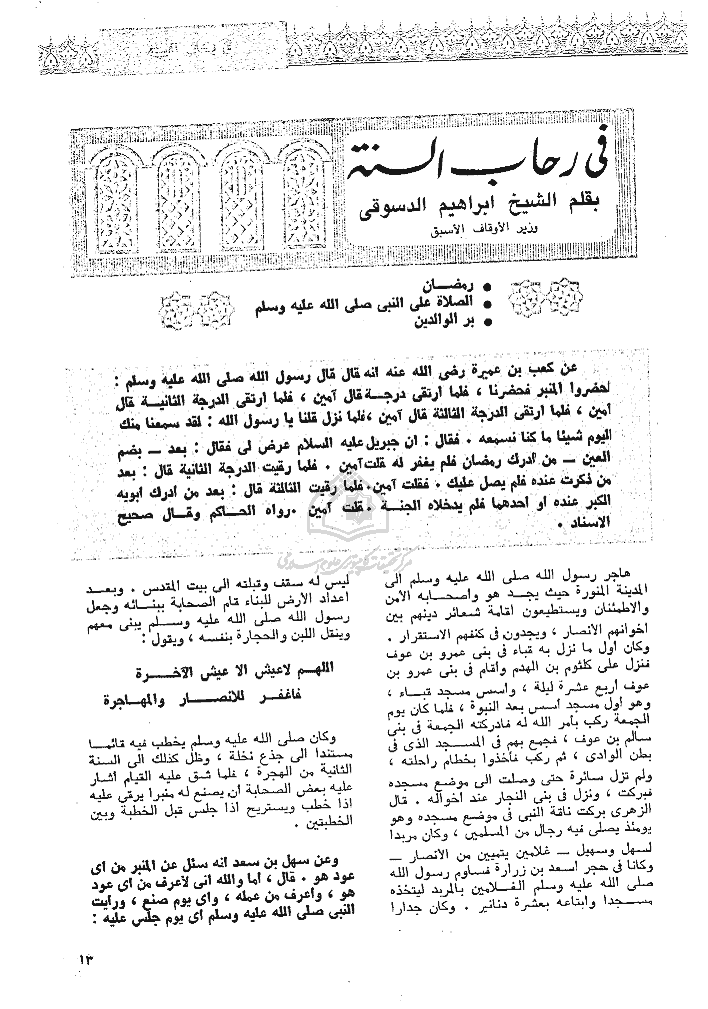 فى رحاب السنة
بقلم الشيخ ابراهيم الدسوقى
وزير الأوقاف الأسبق
● رمضــان
● الصلاة على النبى صلى الله عليه وسلم
● بر الوالدين
عن كعب بن عميرة رضى الله عنه انه قال قال رسول الله صلى الله عليه وسلم :
احضروا المنبر فحضرنا ، فلما ارتقى درجة قال آمين ، فلما ارتقى الدرجة الثانيـة قال
آمين ، فلما ارتقى الدرجة الثالثة قال آمين ،فلما نزل قلنا يا رسول الله : لقد سمعنا منك
اليوم شيئا ما كنا نسمعه . فقال : ان جبريل عليه السلام عرض لى فقال : بعد ــ بضم
العين ــ من أدرك رمضان فلم يغفر له قلت آمين . فلما رقيت الدرجة الثانية قال : بعد
من ذكرت عنده فلم يصل عليك . فقلت آمين. فلما رقيت الثالثة قال : بعد من ادرك ابويه
الكبر عنده او احدهما فلم يدخلاه الجنـة . قلت آمين .رواه الحـاكم وقـال صحيح
الاسناد .
هاجر رسول الله صلى الله عليه وسلم الى
المدينة المنورة حيث يجـد هو واصحـابه الأمن
والاطمئنان ويستطيعون اقامة شعائر دينهم بين
اخوانهم الانصار ، ويجدون فى كنفهم الاستقرار .
وكان أول ما نزل به قباء فى بنى عمرو بن عوف
فنزل على كلثوم بن الهدم وأقام فى بنى عمرو بن
عوف أربع عشـرة ليلة ، وأسس مسجد قبـاء ،
وهو أول مسجد أسس بعد النبوة ، فلما كان يوم
الجمعة ركب بأمر الله له فادركته الجمعة فى بنى
سالم بن عوف ، فجمع بهم فى المسـجد الذى فى
بطن الوادى ، ثم ركب فأخذوا بخطام راحلته ،
ولم تزل سائرة حتى وصلت الى موضع مسجده
فبركت ، ونزل فى بنى النجار عند اخواله . قال
الزهرى بركت ناقة النبى فى موضع مسجده وهو
يومئذ يصلى فيه رجال من المسلمين ، وكان مربدا
لسهل وسهيل ــ غلامين يتيمين من الأنصار ــ
وكانا فى حجر اسعد بن زرارة فساوم رسول الله
صلى الله عليه وسلم الغـلامين بالمربد ليتخذه
مسـجدا وابتاعه بعشرة دنانير . وكان جدارا
ليس له سقف وقبلته الى بيت المقدس . وبعـد
اعداد الارض للبناء قام الصحابة ببنـائه وجعل
رسول الله صلى الله عليه وسـلم يبنى معهم
وينقل اللبن والحجارة بنفسه ، ويقول :
اللهـم لاعيش الا عيش الآخـرة
فاغفـر للانصـار والمهـاجرة
وكان صلى الله عليه وسلم يخطب فيه قائمـا
مستندا الى جذع نخلة ، وظل كذلك الى السنة
الثانية من الهجرة ، فلما شق عليه القيام أشار
عليه بعض الصحابة أن يصنع له منبرا يرقى عليه
اذا خطب ويستريح اذا جلس قبل الخطبة وبين
الخطبتين .
وعن سهل بن سعد انه سئل عن المنبر من أى
عود هو . قال ، أما والله انى لأعرف من أى عود
هو ، وأعرف من عمله ، وأى يوم صنع ، ورأيت
النبى صلى الله عليه وسلم أى يوم جلس عليه :
١٣